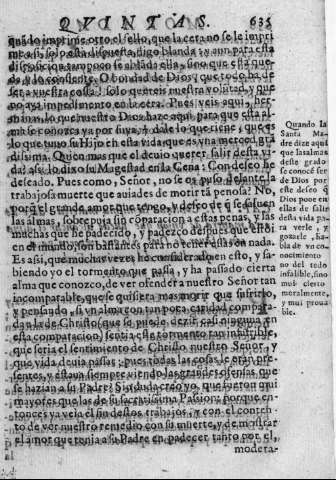 QVINTAS. 635
quãdo imprime otro el sello, que la cera no se le impri
me a si, solo està dispuesta, digo blanda; y aun para esta
disposicion tampoco se ablãda ella, sino que està que
da, y lo consiente. O bondad de Dios, que todo ha de
ser a vuestra costa! solo quereis nuestra volũtad, y que
no aya impedimento en la cera. Pues veis aqui, her-
manas, lo que nuestro Dios haze aqui, para que esta al
ma se conozca ya por suya, dale de lo que tiene, que es
lo que tuuo su Hijo en esta vida, que es vna merced grã
dissima. Quien mas que el deuio querer salir desta vi-
da? assi lo dixo su Magestad en la Cena: Con desseo he
desseado. Pues como, Señor, no se os puso delante la
trabajosa muerte que auiades de morir tã penosa? No,
porq̃ el grande amor que tengo, y desseo de q̃ se saluen
las almas, sobrepuja sin cõparacion a estas penas, y las
muchas que he padecido, y padezco despues que estoi
en el mundo, son bastantes para no tener estas en nada.
Es assi, que muchas vezes he considerado en esto, y sa-
biendo yo el tormento que passa, y ha passado cierta
alma que conozco, de ver ofender a nuestro Señor tan
incomparable, que se quisiera mas morir que sufrirlo,
y pensando, si vn alma con tan poca caridad compara-
da a la de Christo (que se puede dezir casi ninguna en
esta comparacion) sentia este tormento tan insufrible,
que seria el sentimiento de Christo nuestro Señor, y
que vida deuia passar; pues todas las cosas le eran pre-
sentes, y estaua siempre viendo las grandes ofensas que
se hazian a su Padre? Sin duda creo yo, que fueron mui
mayores que las de su sacratissima Passion; porque en-
tonces ya veia el fin destos trabajos, y con el conten-
to de ver nuestro remedio con su muerte, y de mostrar
el amor que tenia a su Padre en padecer tanto por el,
modera-
Quando la
Santa Ma-
dre dize aqui
que las almas
deste grado
se
Dios por
este desseo q̃
Dios pone en
ellas de salir
desta vida pa
ra verle, y
gozarle, ha-
bla de vn co-
nocimiento
no del todo
infalible, sino
mui cierto
moralmente,
y mui proua
ble.